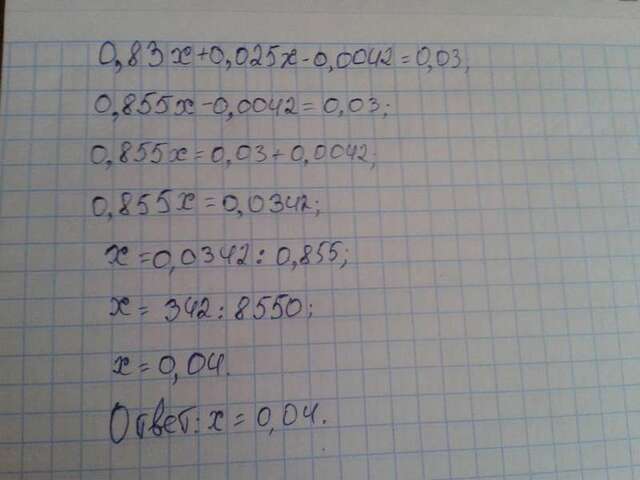 0,83x+0,025x-0,0042=0,03;
0,855x-0,0042=0,03;
0,855x=0,03+0,0042;
0,855x=0,0342;
x=0,0342:0,855;
x=342:8550;
x=0,04.
Ответ: x=0,04.